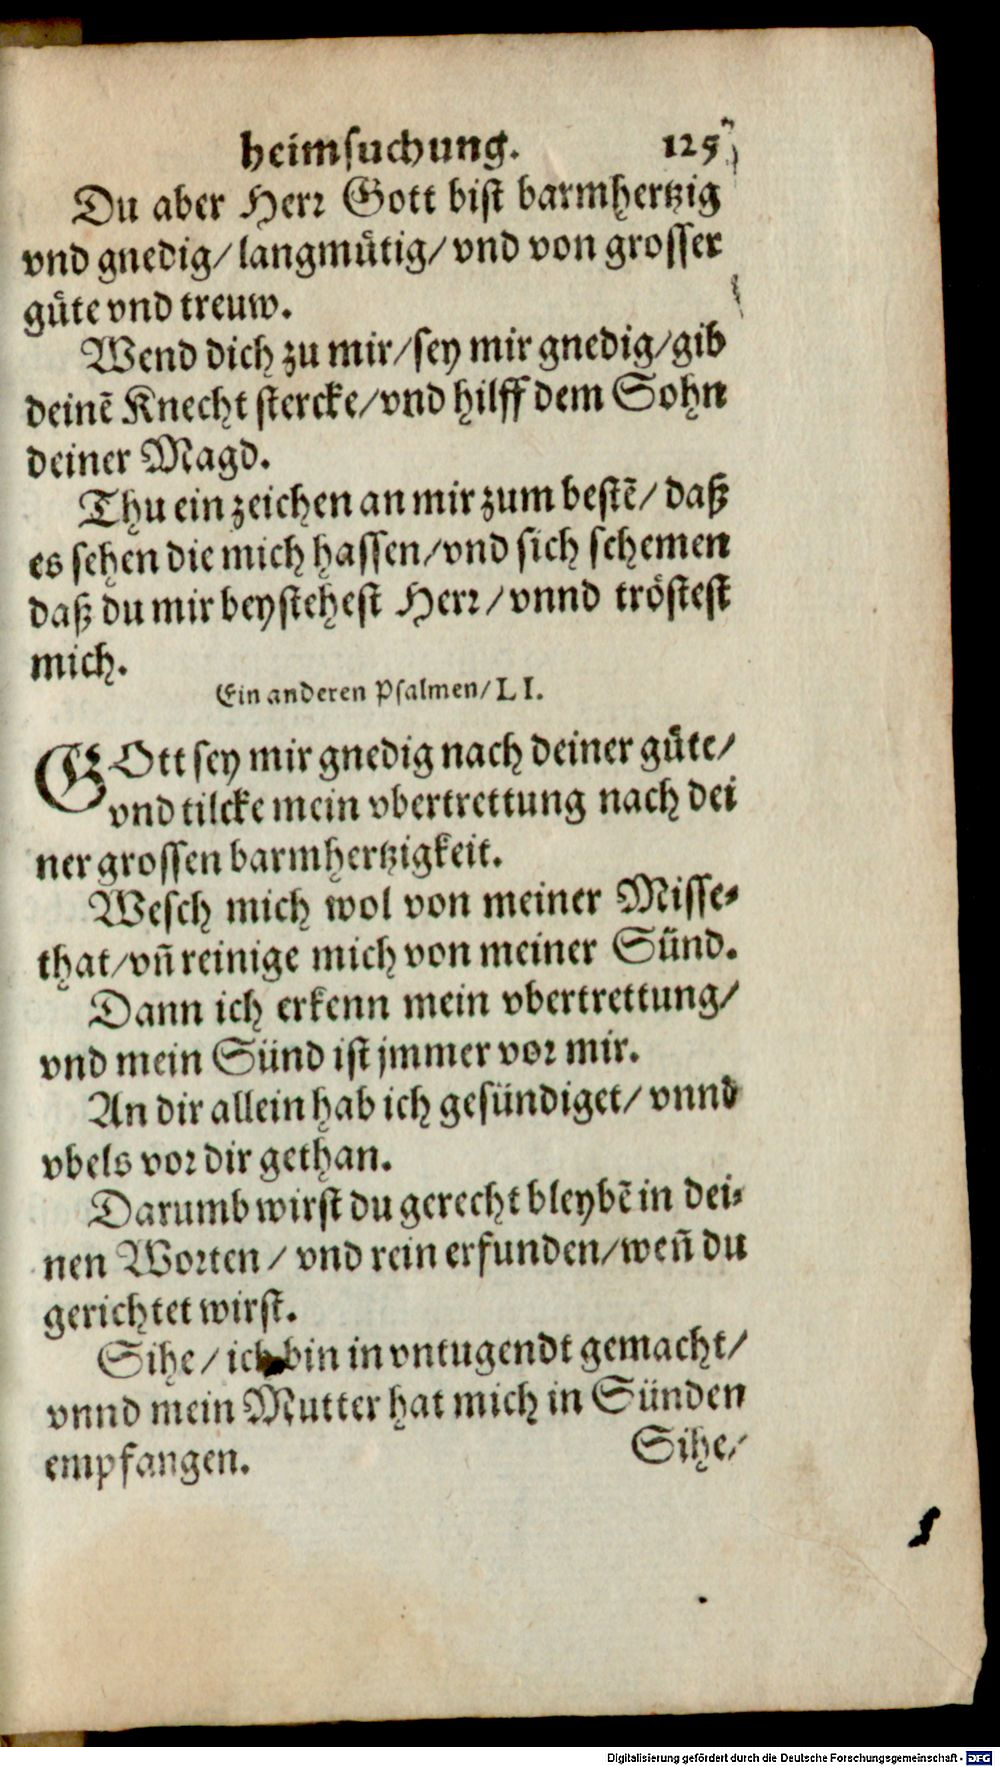 heimsuchung. 125
Du aber Herr Gott bist barmhertzig
vnd gnedig/ langmütig/ vnd von grosser
güte vnd treuw.
Wend dich zu mir/ sey mir gnedig/ gib
deinē Knecht stercke/ vnd hilff dem Sohn
deiner Magd.
Thu ein zeichen an mir zum bestē/ daß
es sehen die mich hassen/ vnd sich schemen
daß du mir beystehest Herr/ vnnd tröstest
mich.
Ein anderen Psalmen/ LI.
GOtt sey mir gnedig nach deiner güte/
vnd tilcke mein vbertrettung nach dei
ner grossen barmhertzigkeit.
Wesch mich wol von meiner Misse-
that/ vñ reinige mich von meiner Sünd.
Dann ich erkenn mein vbertrettung/
vnd mein Sünd ist jmmer vor mir.
An dir allein hab ich gesündiget/ vnnd
vbels vor dir gethan.
Darumb wirst du gerecht bleybē in dei-
nen Worten/ vnd rein erfunden/ weñ du
gerichtet wirst.
Sihe/ ich bin in vntugendt gemacht/
vnnd mein Mutter hat mich in Sünden
empfangen. Sihe/
Digitalisierung gefördert durch die Deutsche Forschungsgemeinschaft - DFG